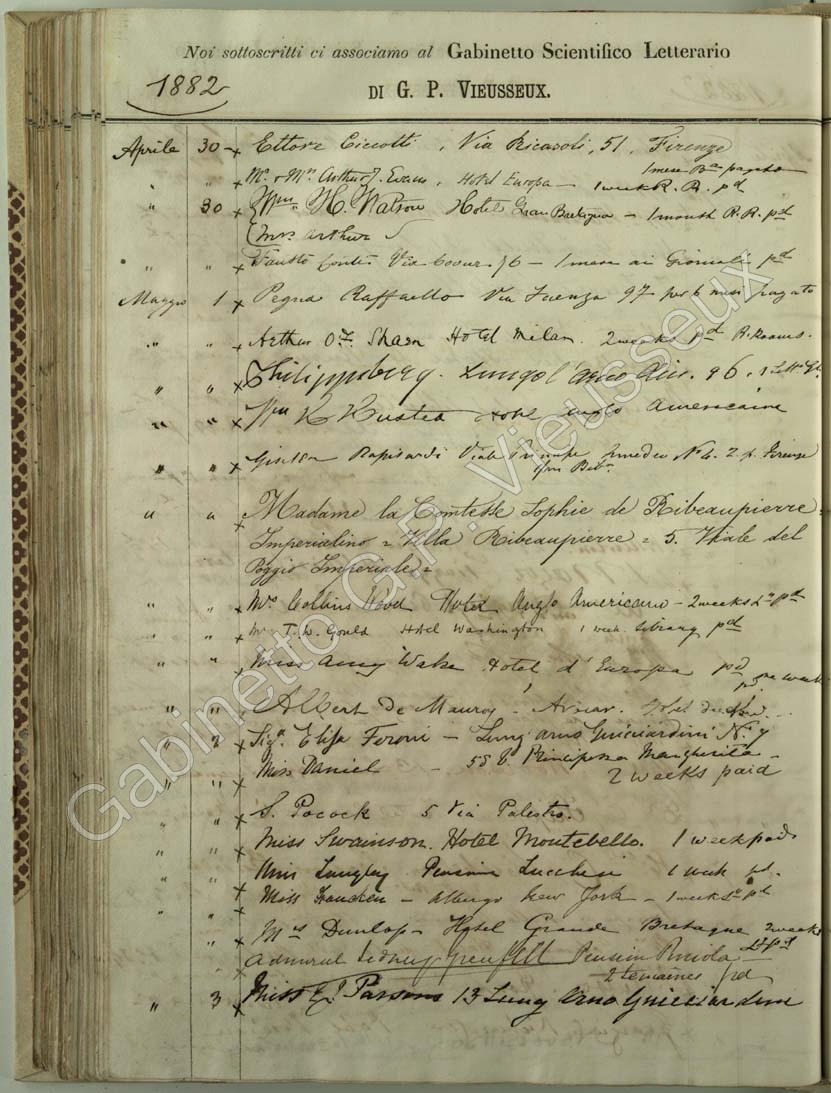 Noi sottoscritti ci associamo al Gabinetto Scientifico Letterario
1882
DI G. P. VIEUSSEUX.
Aprile 30 - x Ettore Ciccotti, Via Ricasoli, 51, Firenze
1 mese pagato
" " x Mr & Mrs Arthur J. Evans, Hotel Europa - 1 week R. R. pd
" 30 x Wm H. Watson Hotel Gran Bretagna - 1 month R. R. pd
Mrs Arthur
" " x Fausto Via Cavour 76 - 1 mese ai Giornali pd
Maggio 1 x Pegna Raffaello Via Faenza 97 per 6 mesi pagato
" " x Arthur Hotel Milan. 2 weeks pd R. Rooms.
" " x Philippsberg. Lungol'Arno
" " x Wm K Hotel Anglo Americaine
" " x Rapisardi Viale Principe Amedeo No 4. 2 p. Firenze
" " x Madame la Comtesse Sophie de Ribeaupierre
Imperialino = Villa Ribeaupierre = 5. Viale del
Poggio Imperiale =
" " x Mrs Collins Wood Hotel Anglo Americano - 2 weeks pd
" " x Mr J. W. Gould Hotel Washington 1 week library pd
" " x Miss Amy Wake Hotel d'Europa pd
one week
" " x Albert de Mauroy
" 2 x Siga. Elisa Feroni - Lung'arno Guicciardini No 7
" " x Miss Daniel - 58 V. Principessa Margherita -
2 weeks paid
" " x S. Pocock 5 Via Palestro.
" " x Miss Swainson. Hotel Montebello. 1 week paid
" " x Miss Langley Pension Lucchesi 1 week pd.
" " x Miss - Albergo New York - 1 week pd
" " x Mrs Dunlop - Hotel Grande Bretagne 2 weeks
pd
" x Admiral Sidney Grenfell Pension
2 semaines pd
" 3 x Miss Parsons 13 Lung Arno Guicciardini
Gabinetto G.P. Vieusseux